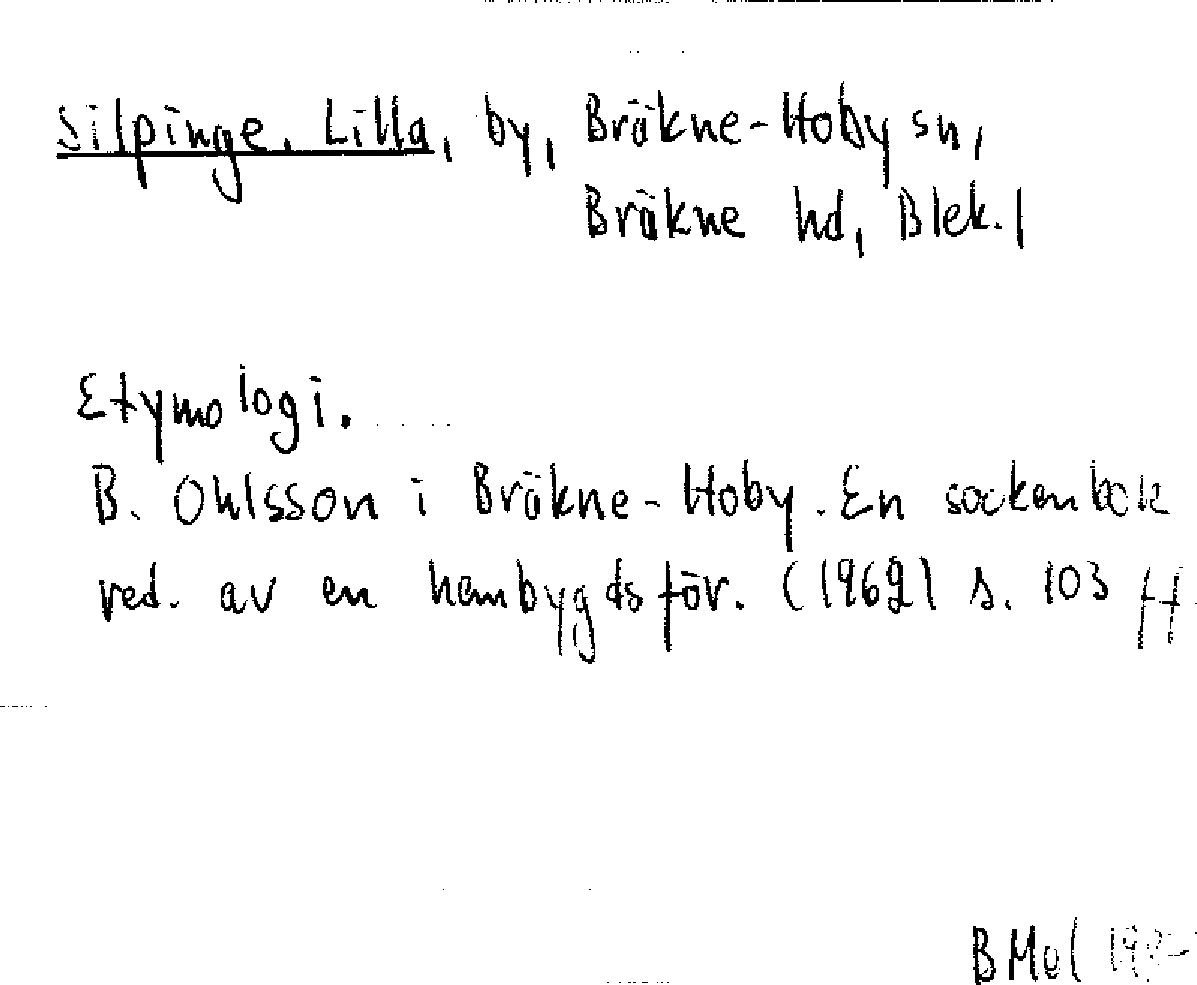 Silpinge, Lilla, by, Bräkne-Hoby sn,
Bräkne hd, Blek. l
Etymologi.
B. Ohlsson i Bräkne-Hoby. En sockenbok
red. av en hembygdsför. (1962) s. 103 ff.
BMol